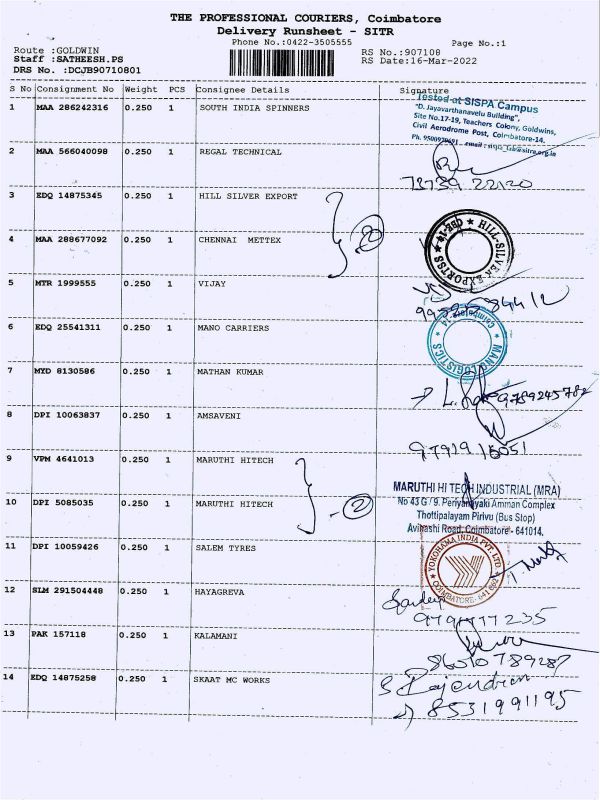 THE PROFESSIONAL COURIERS, Coimbatore
Delivery Runsheet - SITR
Phone No.:0422-3505555
Page No.:1
Route :GOLDWIN
RS No.:907108
Staff :SATHEESH.PS
RS Date:16-Mar-2022
DRS No. :DCJB90710801
S No Consignment No Weight PCS Consignee Details Signature
1 MAA 286242316 0.250 1 SOUTH INDIA SPINNERS
Tested at SISPA Campus
"D. Jayavarthanavelu Building",
Site No.17-19, Teachers Colony, Goldwins,
Civil Aerodrome Post, Coimbatore-14.
2 MAA 566040098 0.250 1 REGAL TECHNICAL
73739 22120
3 EDQ 14875345 0.250 1 HILL SILVER EXPORT
2
HILL-SILVER EXPORTSS ★ CBE-14 ★
4 MAA 288677092 0.250 1 CHENNAI METTEX
5 MTR 1999555 0.250 1 VIJAY
6 EDQ 25541311 0.250 1 MANO CARRIERS
7 MYD 8130586 0.250 1 MATHAN KUMAR
9789245782
8 DPI 10063837 0.250 1 AMSAVENI
9 VPM 4641013 0.250 1 MARUTHI HITECH
- 2
MARUTHI HI TECH INDUSTRIAL (MRA)
No 43 G / 9. Periyanayaki Amman Complex
Thottipalayam Pirivu (Bus Stop)
Avinashi Road, Coimbatore - 641014.
10 DPI 5085035 0.250 1 MARUTHI HITECH
11 DPI 10059426 0.250 1 SALEM TYRES
YOKOHAMA INDIA PVT. LTD
COIMBATORE: 641 062
12 SLM 291504448 0.250 1 HAYAGREVA
13 PAK 157118 0.250 1 KALAMANI
8610789287
14 EDQ 14875258 0.250 1 SKAAT MC WORKS
S Rajendran
8531991195